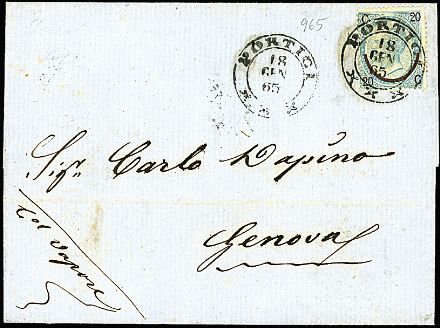 965
PORTICI
18
GEN
65
C 20
PORTICI
18
GEN
65
20 C
Sigr Carlo Dapino
Genova
Col Vapore